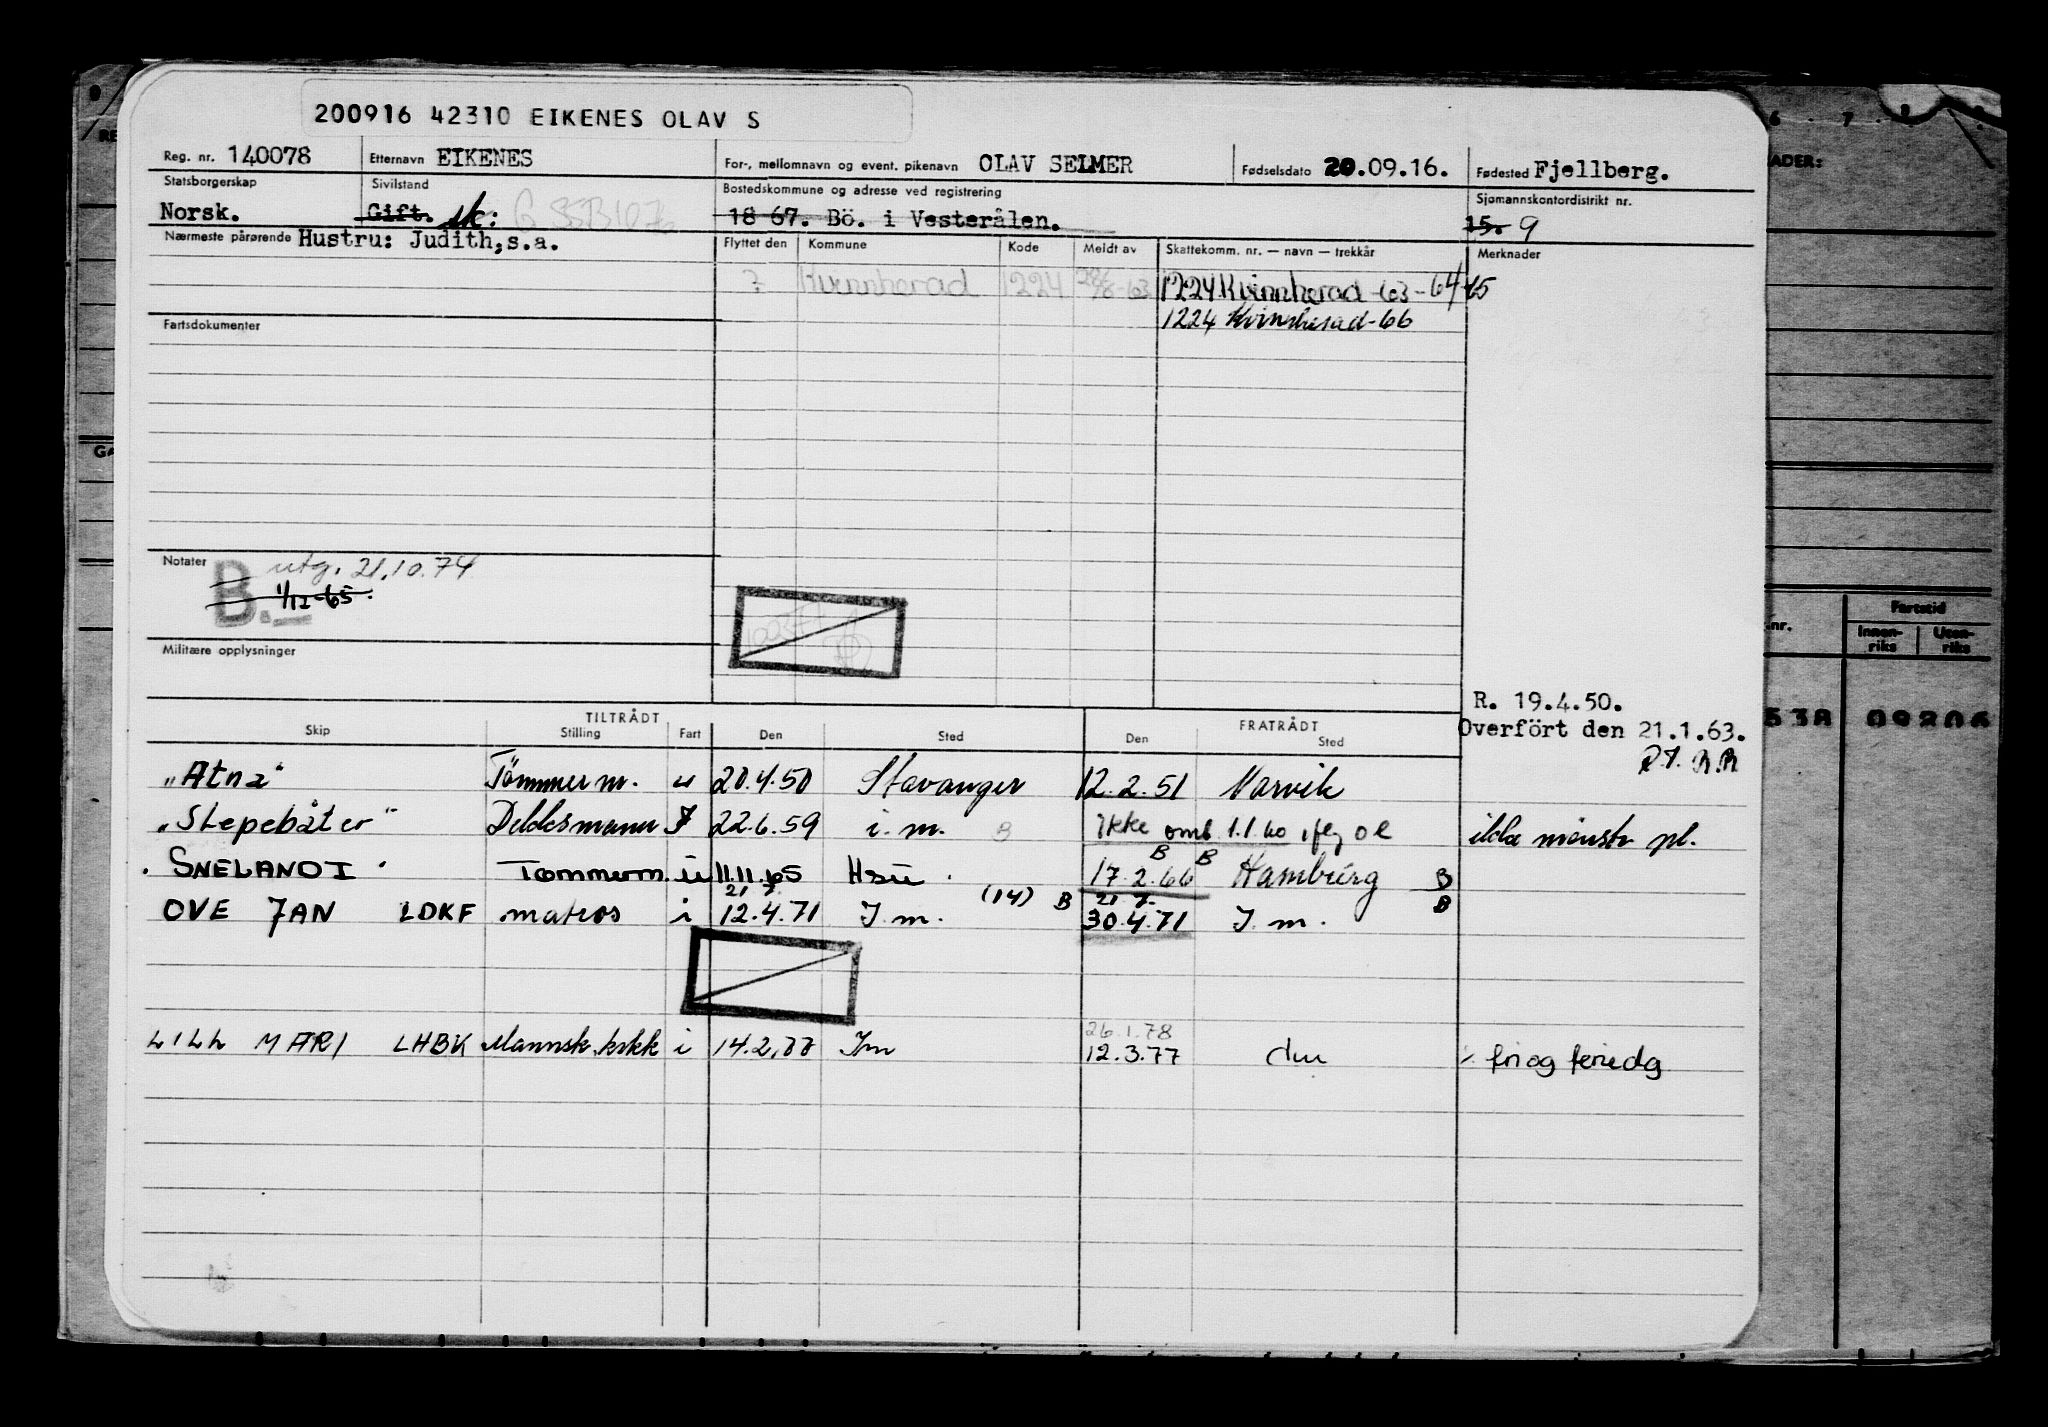 200916 42310 EIKENES OLAV S
Reg. nr. 140078 Etternavn EIKENES For-, mellomnavn og event. pikenavn OLAV SELMER Fødselsdato 20.09.16. Fødested Fjellberg.
Statsborgerskap Sivilstand Bostedskommune og adresse ved registrering Sjømannskontordistrikt nr.
Norsk. Gift. 18 67. Bö. i Vesterålen. 15. 9
Nærmeste pårørende Hustru: Judith,s.a. Flyttet den Kommune Kode Meldt av Skattekomm. nr. — navn — trekkår Merknader
7 Kvinnherad 1224 1224 Kvinnherad -63-64 65
Fartsdokumenter 1224 Kvinnherad-66
Notater utg. 21.10.74
B. 1/12-65.
Militære opplysninger
R. 19.4.50.
Overfört den 21.1.63.
TILTRÅDT FRATRÅDT
Skip Stilling Fart Den Sted Den Sted
"Atna" Tömmerm. u 20.4.50 Stavanger 12.2.51 Narvik
"Slepebåter" Dekksmann 22.6.59 i.m. B Ikke omb 1.1.60
SNELAND I Tømmerm. u 11.11.65 Hsu 17.2.66 B B Hamburg B
21 7. (14) B 21 7. B
OVE JAN LDKF matros i 12.4.71 I.m. 30.4.71 I.m.
26.1.78
LILL MARI LHBK Mannsk.kokk i 14.2.77 Im 12.3.77 du fri og feriedg
Fartstid
Innen-riks Uten-riks
09206